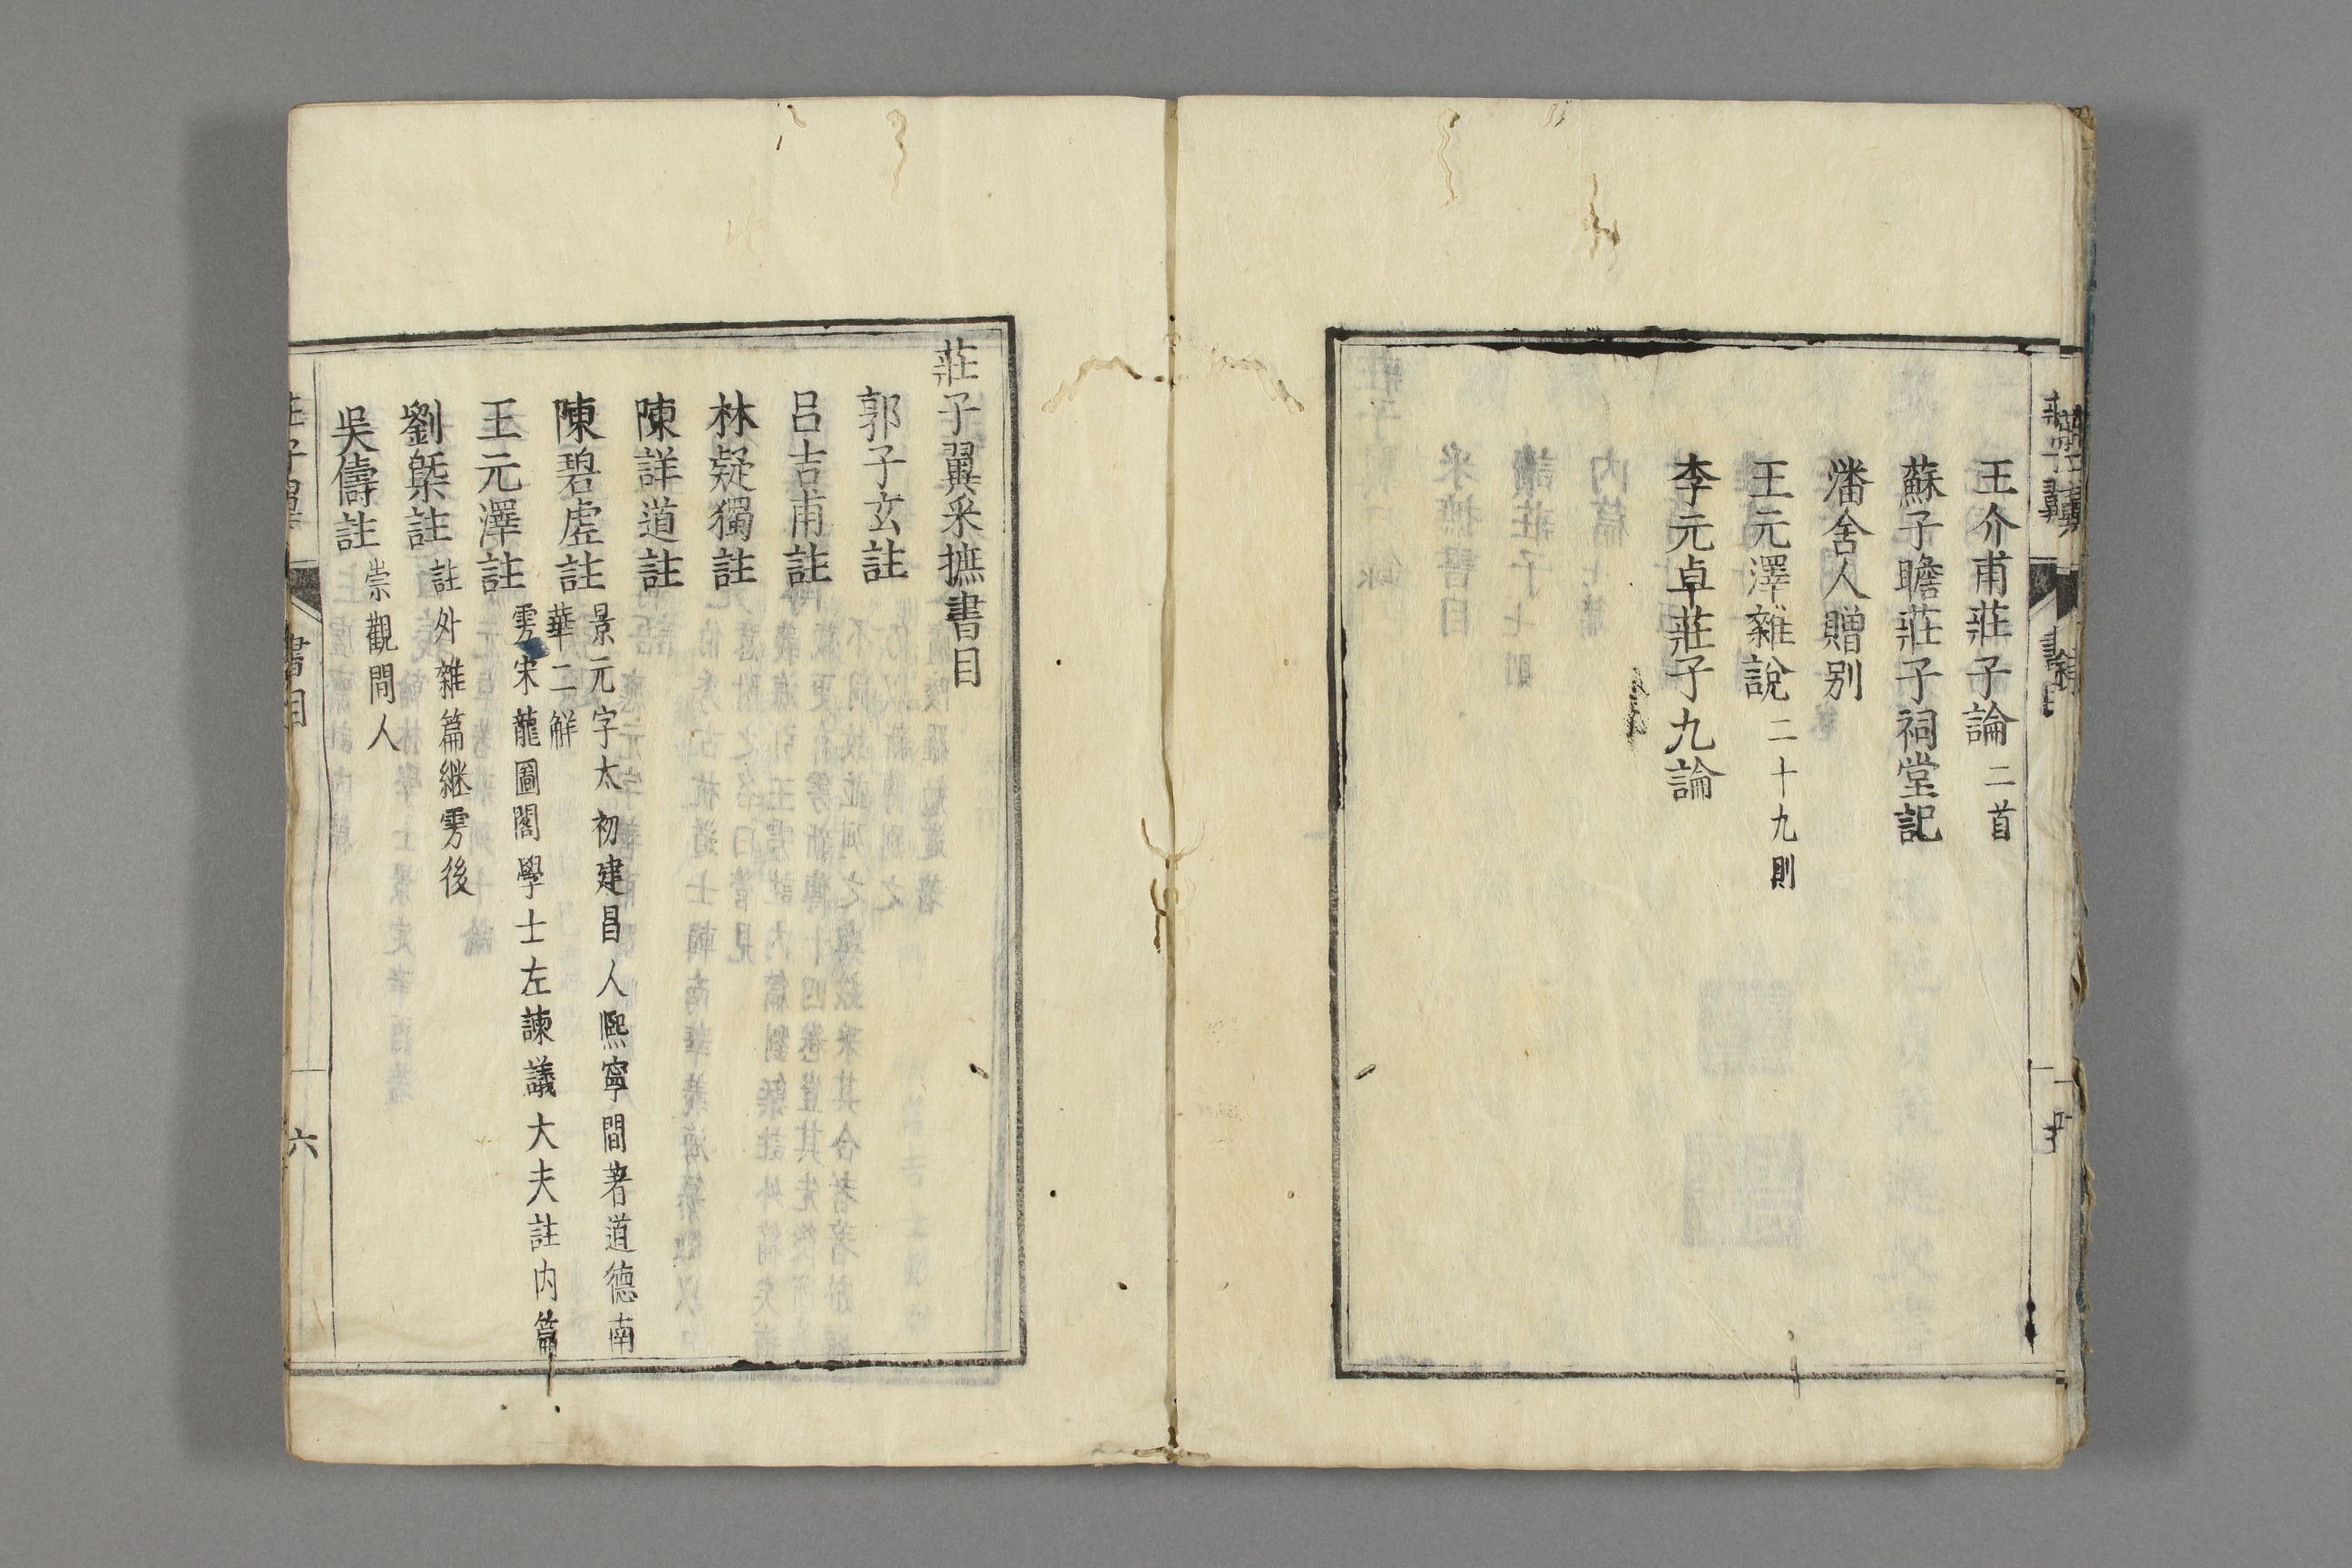 王介甫莊子論二首
蘇子瞻莊子祠堂記
潘舍人贈别
王元澤雜說二十九則
李元卓莊子九論
莊子翼采摭書目
郭子玄註
呂吉甫註
林疑獨註
陳詳道註
陳碧虛註景元字太初建昌人熈寧間著道德南
華二解
王元澤註雱宋龍圖閣學士左諫議大夫註内篇
劉槩註註外雜篇継雱後
吳儔註崇觀間人
書目
六